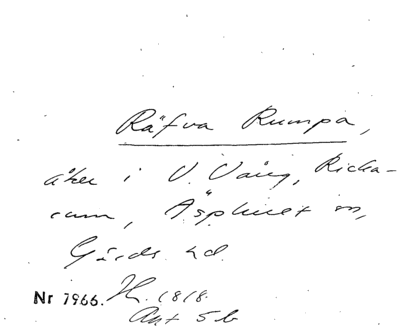 Räfva Rumpa,
åker i V. Vång, Ricka-
rum, Äsphult sn,
Gärds hd.
Nr 7966. Jk. 1818.
Akt 5 b